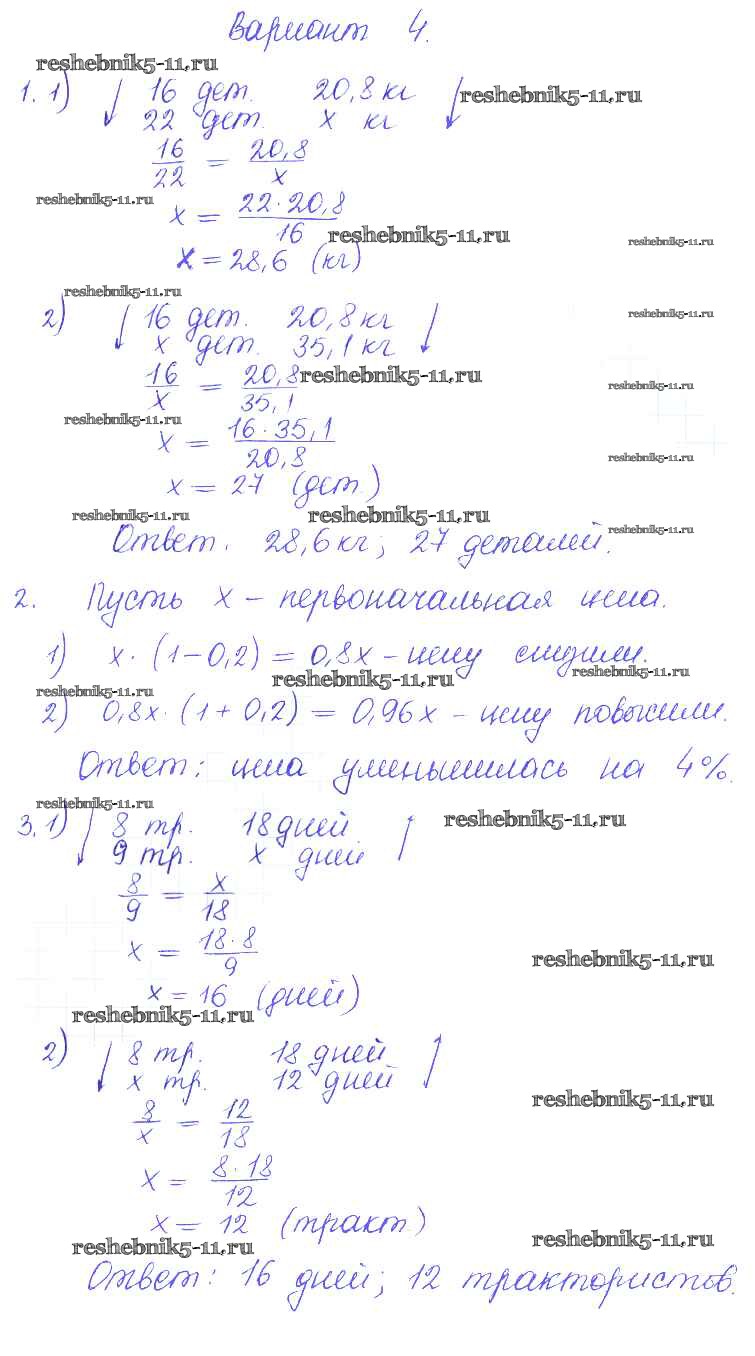 Вариант 4.
reshebnik5-11.ru
1. 1) ↓ 16 дет. 20,8 кг ↓ reshebnik5-11.ru
22 дет. x кг
16/22 = 20,8/x
reshebnik5-11.ru
x = 22·20,8/16
reshebnik5-11.ru reshebnik5-11.ru
x = 28,6 (кг)
reshebnik5-11.ru
2) ↓ 16 дет. 20,8 кг ↓ reshebnik5-11.ru
x дет. 35,1 кг
16/x = 20,8/35,1 reshebnik5-11.ru
reshebnik5-11.ru
reshebnik5-11.ru
x = 16·35,1/20,8
reshebnik5-11.ru
x = 27 (дет.)
reshebnik5-11.ru reshebnik5-11.ru
reshebnik5-11.ru
Ответ. 28,6 кг; 27 деталей.
2. Пусть x – первоначальная цена.
1) x·(1–0,2) = 0,8x – цену снизили.
reshebnik5-11.ru reshebnik5-11.ru
reshebnik5-11.ru
2) 0,8x·(1+0,2) = 0,96x – цену повысили.
Ответ: цена уменьшилась на 4%.
reshebnik5-11.ru
3. 1) ↓ 8 тр. 18 дней ↑ reshebnik5-11.ru
9 тр. x дней
8/9 = x/18
x = 18·8/9
reshebnik5-11.ru
x = 16 (дней)
reshebnik5-11.ru
2) ↓ 8 тр. 18 дней ↑
x тр. 12 дней
reshebnik5-11.ru
8/x = 12/18
x = 8·18/12
x = 12 (тракт.)
reshebnik5-11.ru reshebnik5-11.ru
Ответ: 16 дней; 12 трактористов.